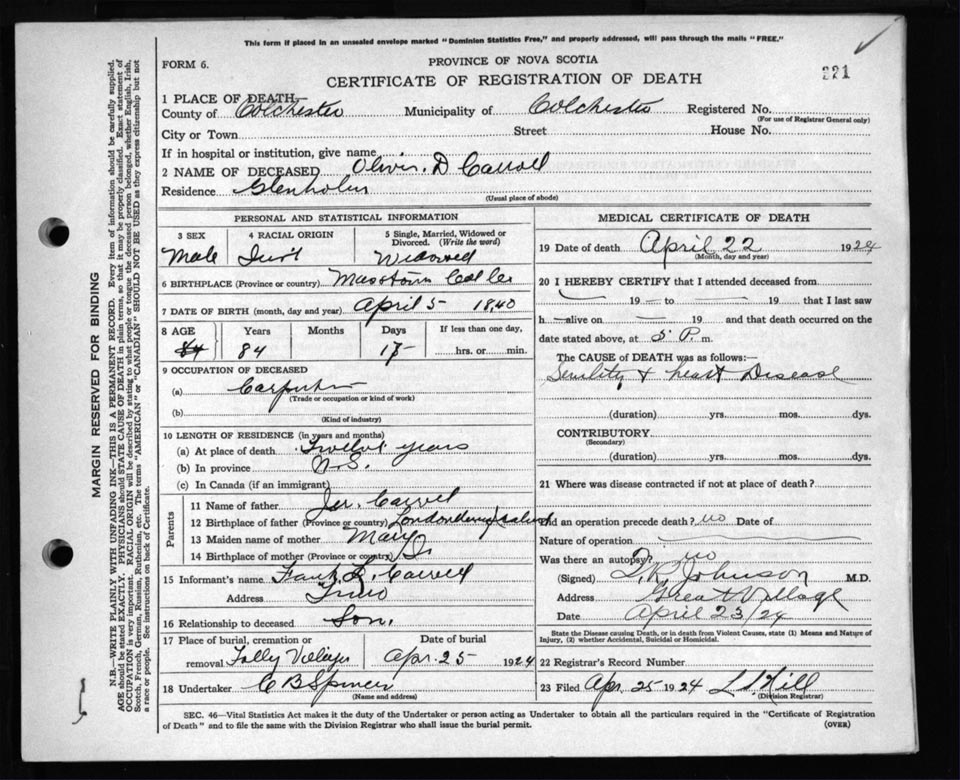 This form if placed in an unsealed envelope marked "Dominion Statistics Free," and properly addressed, will pass through the mails "FREE."
FORM 6.
PROVINCE OF NOVA SCOTIA
CERTIFICATE OF REGISTRATION OF DEATH
221
1 PLACE OF DEATH—
County of Colchester Municipality of Colchester Registered No.
(For use of Registrar General only)
City or Town Street House No.
If in hospital or institution, give name
2 NAME OF DECEASED Oliver. D Carroll
Residence Glenholm
(Usual place of abode)
PERSONAL AND STATISTICAL INFORMATION
3 SEX 4 RACIAL ORIGIN 5 Single, Married, Widowed or Divorced. (Write the word)
Male Widowed
6 BIRTHPLACE (Province or country) Masstown
7 DATE OF BIRTH (month, day and year) April 5 1840
8 AGE Years Months Days If less than one day,
84 84 17 hrs. or min.
9 OCCUPATION OF DECEASED
(a) Carpenter
(Trade or occupation or kind of work)
(b)
(Kind of industry)
10 LENGTH OF RESIDENCE (in years and months)
(a) At place of death Twelve years
(b) In province N.S.
(c) In Canada (if an immigrant)
Parents
11 Name of father
12 Birthplace of father (Province or country) Londonderry Ireland
13 Maiden name of mother Mary
14 Birthplace of mother (Province or country)
15 Informant's name Frank Carroll
Address Truro
16 Relationship to deceased Son.
17 Place of burial, cremation or Date of burial
removal Folly Village Apr. 25 1924
18 Undertaker C B Spencer
(Name and address)
MEDICAL CERTIFICATE OF DEATH
19 Date of death April 22 1924
(Month, day and year)
20 I HEREBY CERTIFY that I attended deceased from
— 19 — to — 19 that I last saw
h — alive on — 19 and that death occurred on the
date stated above, at 5 P. m.
The CAUSE of DEATH was as follows:—
Senility & heart Disease
(duration) yrs. mos. dys.
CONTRIBUTORY
(Secondary)
(duration) yrs. mos. dys.
21 Where was disease contracted if not at place of death?
Did an operation precede death? no Date of
Nature of operation
Was there an autopsy? no
(Signed) Johnson M.D.
Address Great Village
Date April 23/24
State the Disease causing Death, or in death from Violent Causes, state (1) Means and Nature of
Injury, (2) whether Accidental, Suicidal or Homicidal.
22 Registrar's Record Number
23 Filed Apr. 25 1924 Hill
(Division Registrar)
SEC. 46—Vital Statistics Act makes it the duty of the Undertaker or person acting as Undertaker to obtain all the particulars required in the "Certificate of Registration
of Death" and to file the same with the Division Registrar who shall issue the burial permit. (OVER)
MARGIN RESERVED FOR BINDING
N.B.—WRITE PLAINLY WITH UNFADING INK—THIS IS A PERMANENT RECORD. Every item of information should be carefully supplied.
AGE should be stated EXACTLY. PHYSICIANS should STATE CAUSE OF DEATH in plain terms, so that it may be properly classified. Exact statement of
OCCUPATION is very important. RACIAL ORIGIN will be described by stating to what people or tongue the deceased person belonged, whether English, Irish,
Scotch, French, German, Russian, Ruthenian, etc. The terms "AMERICAN" or "CANADIAN" SHOULD NOT BE USED as they express citizenship but not
a race or people. See instructions on back of Certificate.